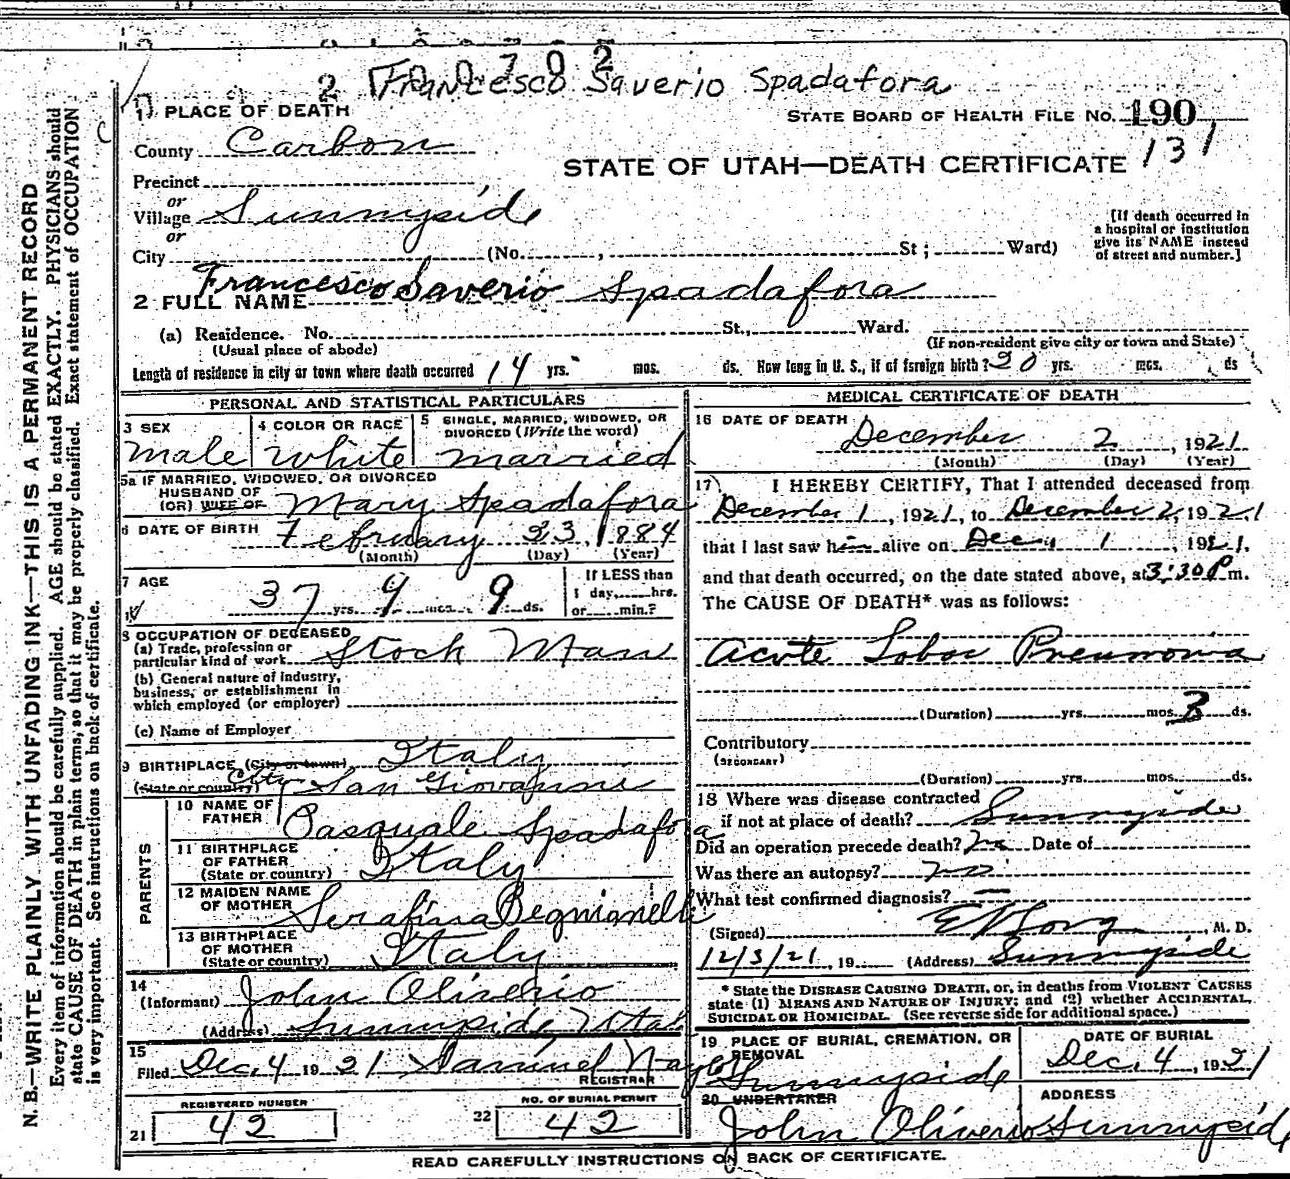 2 Francesco Saverio Spadafora
1 PLACE OF DEATH
STATE BOARD OF HEALTH FILE NO. 190
131
County Carbon
STATE OF UTAH—DEATH CERTIFICATE
Precinct
or
Village Sunnyside
or
City (No. , St ; Ward)
[If death occurred in
a hospital or institution
give its NAME instead
of street and number.]
2 FULL NAME Francesco Saverio Spadafora
(a) Residence. No. St., Ward.
(Usual place of abode) (If non-resident give city or town and State)
Length of residence in city or town where death occurred 14 yrs. mos. ds. How long in U. S., if of foreign birth? 20 yrs. mos. ds
PERSONAL AND STATISTICAL PARTICULARS
3 SEX 4 COLOR OR RACE 5 SINGLE, MARRIED, WIDOWED, OR
DIVORCED (Write the word)
Male White Married
5a IF MARRIED, WIDOWED, OR DIVORCED
HUSBAND OF
(OR) WIFE OF Mary Spadafora
6 DATE OF BIRTH February 23, 1884
(Month) (Day) (Year)
7 AGE 37 yrs. 9 mos. 9 ds. If LESS than
1 day, hrs.
or min.?
8 OCCUPATION OF DECEASED
(a) Trade, profession or
particular kind of work Stock Man
(b) General nature of industry,
business, or establishment in
which employed (or employer)
(c) Name of Employer
9 BIRTHPLACE (City or town) Italy
(State or country) City San Giovanni
PARENTS
10 NAME OF
FATHER Pasquale Spadafora
11 BIRTHPLACE
OF FATHER
(State or country) Italy
12 MAIDEN NAME
OF MOTHER Serafina
13 BIRTHPLACE
OF MOTHER
(State or country) Italy
14
(Informant) John Oliverio
(Address) Sunnyside, Utah
15
Filed Dec. 4 19 21 Samuel
REGISTRAR
REGISTERED NUMBER
21 42
NO. OF BURIAL PERMIT
22 42
MEDICAL CERTIFICATE OF DEATH
16 DATE OF DEATH December 2, 1921
(Month) (Day) (Year)
17 I HEREBY CERTIFY, That I attended deceased from
December 1, 1921, to December 2, 1921
that I last saw him alive on Dec. 1, 1921,
and that death occurred, on the date stated above, at 3:30 P m.
The CAUSE OF DEATH* was as follows:
Acute Lobar Pneumonia
(Duration) yrs. mos. 3 ds.
Contributory
(SECONDARY)
(Duration) yrs. mos. ds.
18 Where was disease contracted
if not at place of death? Sunnyside
Did an operation precede death? no Date of
Was there an autopsy? no
What test confirmed diagnosis? —
(Signed) , M. D.
12/3/21, 19 (Address) Sunnyside
* State the DISEASE CAUSING DEATH, or, in deaths from VIOLENT CAUSES
state (1) MEANS AND NATURE OF INJURY; and (2) whether ACCIDENTAL,
SUICIDAL OR HOMICIDAL. (See reverse side for additional space.)
19 PLACE OF BURIAL, CREMATION, OR
REMOVAL
Sunnyside
DATE OF BURIAL
Dec. 4, 1921
20 UNDERTAKER ADDRESS
John Oliverio Sunnyside
READ CAREFULLY INSTRUCTIONS ON BACK OF CERTIFICATE.
N. B.—WRITE PLAINLY WITH UNFADING INK—THIS IS A PERMANENT RECORD
Every item of information should be carefully supplied. AGE should be stated EXACTLY. PHYSICIANS should
state CAUSE OF DEATH in plain terms, so that it may be properly classified. Exact statement of OCCUPATION
is very important. See instructions on back of certificate.